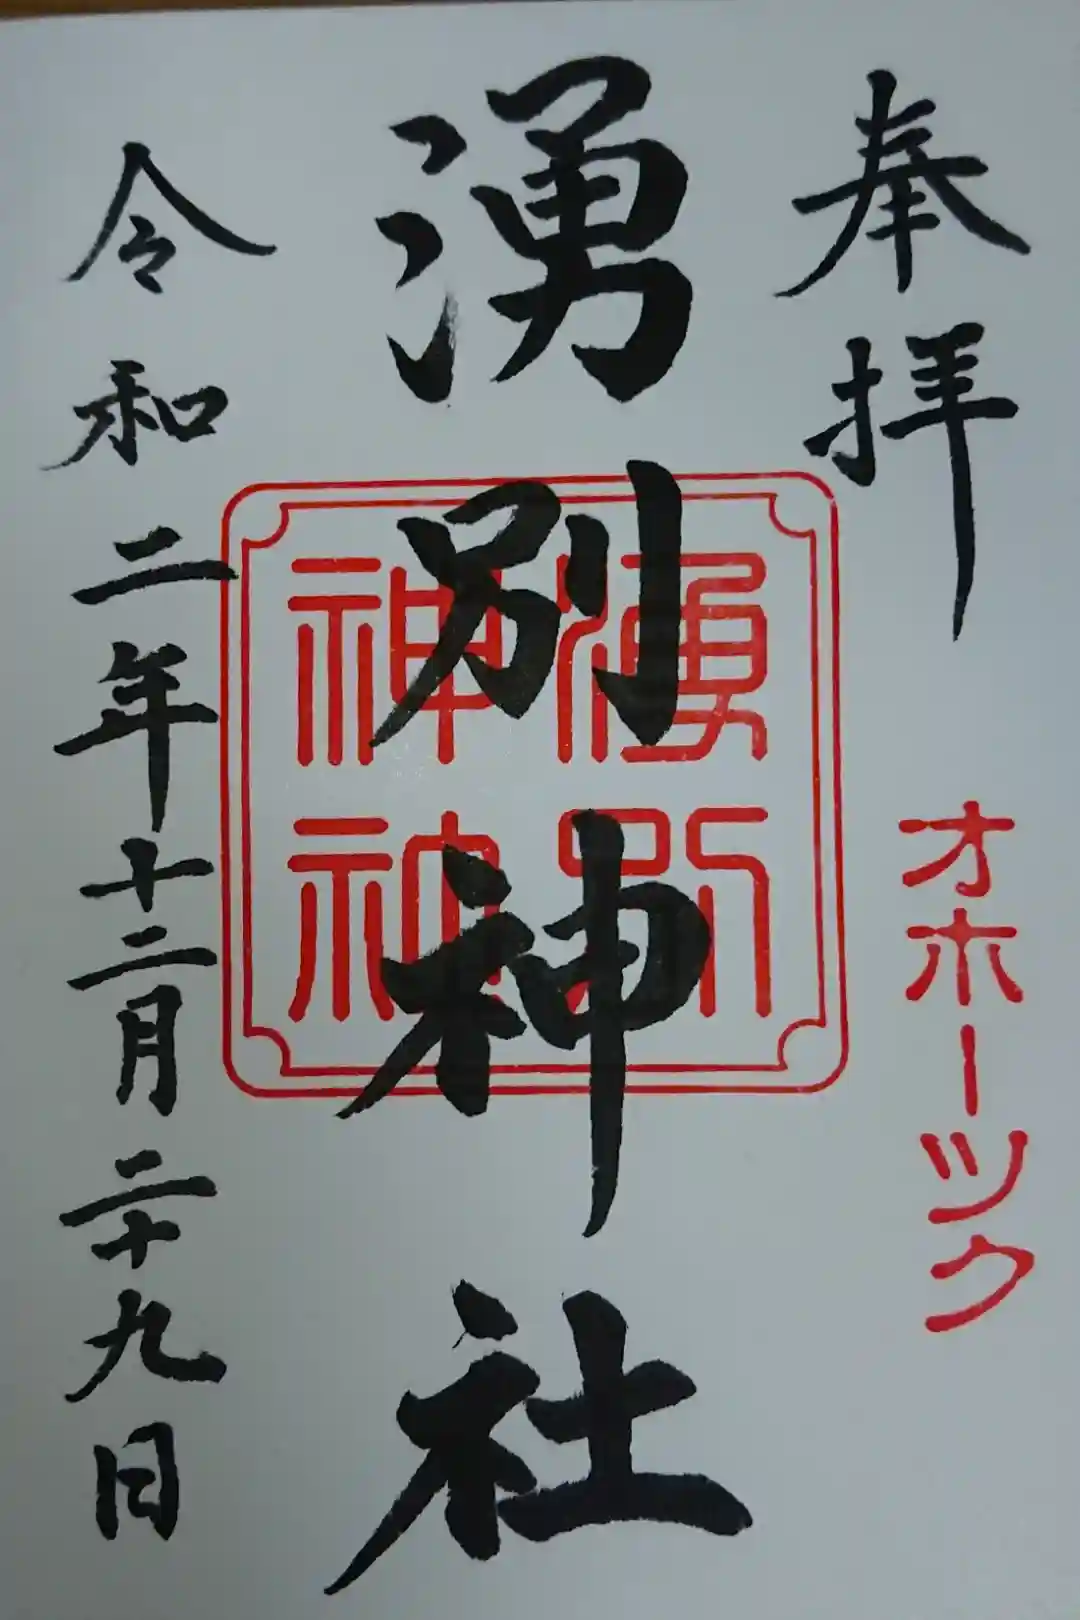 奉拝
オホーツク
湧別神社
湧別
神社
令和二年十二月二十九日